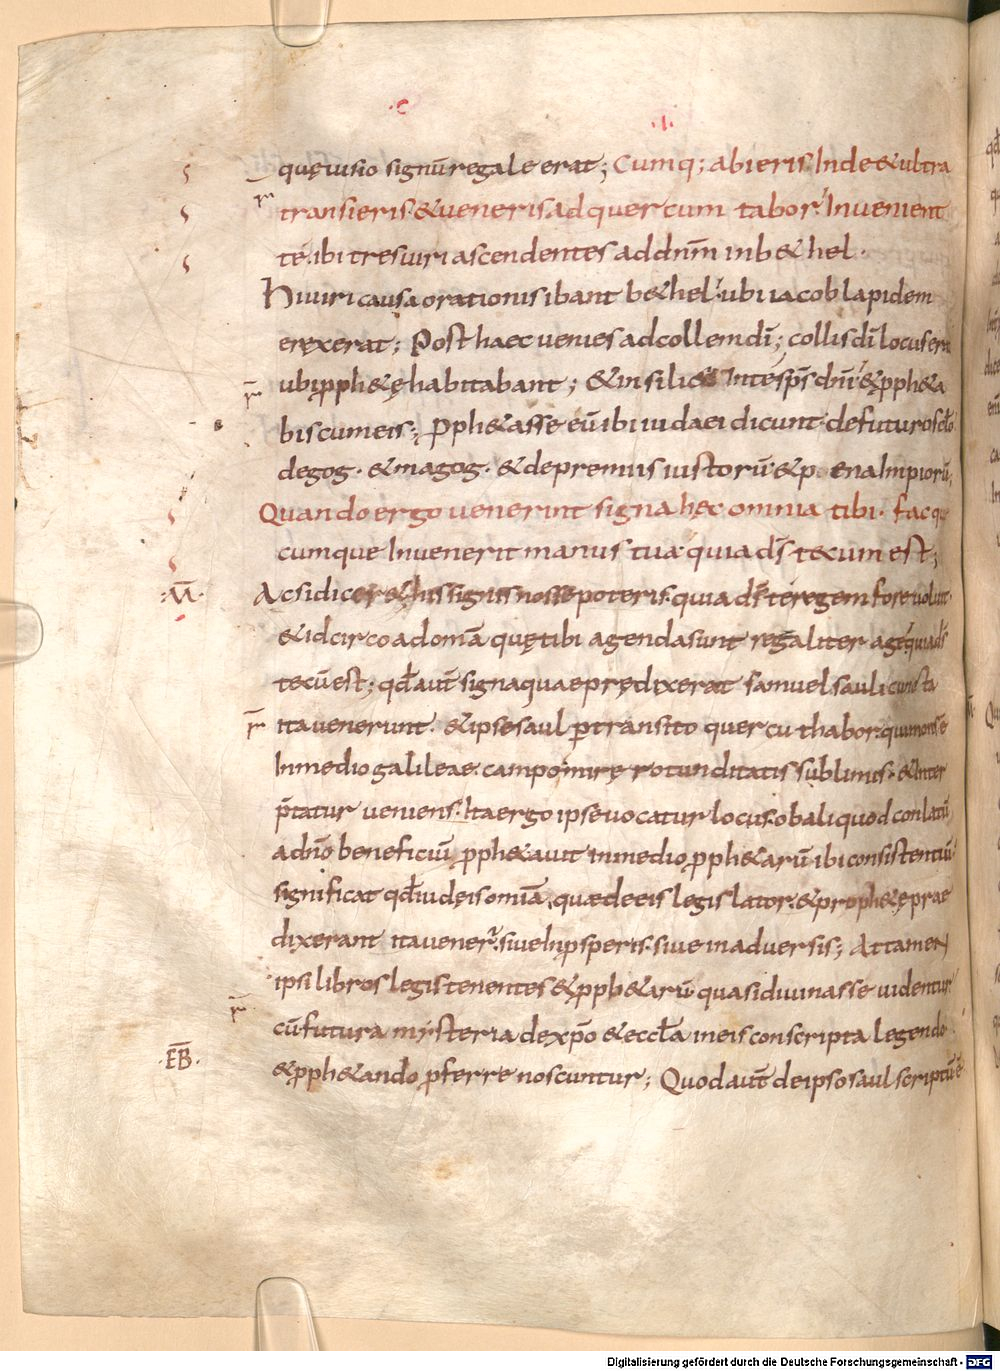 ·c
·I·
quę uisio signū regale erat; Cumq; abieris Inde & ultra
transieris· & ueneris ad quercum tabor· Inuenient
te ibi tres uiri ascendentes ad dn̄m in b&hel·
Hi uiri causa orationis ibant b&hel· ubi iacob lapidem
erexerat; Post haec uenies ad collem dī; collis dī locus erat
ubi pph&ę habitabant; & insili& Inte sp̄s dn̄i & pph&a
bis cum eis; Pph&asse eū ibi iudaei dicunt· de futuro sclo
de gog· & magog· & de premiis iustorū & p ena Impiorū;
Quando ergo uenerint signa hęc omnia tibi· fac quę
cumque Inuenerit manus tua· quia ds̄ tecum est;
·M̄· Ac si dicer& his signis nosse poteris· quia ds̄ te regem fore uoluit·
& idcirco ad omā quę tibi agenda sunt regaliter age· quia ds̄
tecū est; qd̄ aut̄ signa quae prędixerat samuel sauli cuncta
ita uenerunt· & ipse saul ptransito quercu thabor· qui mons ē
In medio galileae campo mirę rotunditatis sublimis· & Inter
p̄tatur ueniens· Ita ergo ipse uocatur locus· ob aliquod conlatū
a dn̄o beneficiū pph&auit in medio pph&arū ibi consistentiū·
significat qd̄ iudęis omīa, quae de eis legislator· & proph&ę prae
dixerant ita uener̄· siue In psperis· siue in aduersis; Attamen
ipsi libros legis tenentes & pph&arū· quasi diuinasse uidentur
cū futura mysteria de xp̄o & eccla in eis conscripta legendo·
·EB̄· & pph&ando pferre noscuntur; Quod aut̄ de ipso saul scriptū ē
Digitalisierung gefördert durch die Deutsche Forschungsgemeinschaft - DFG